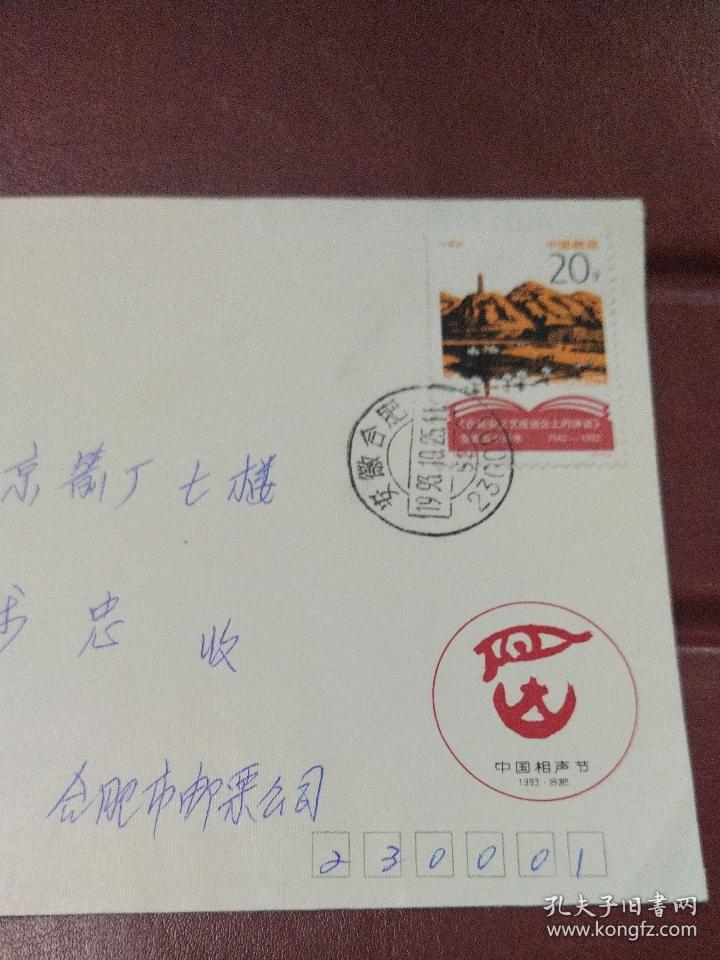 中国邮政
20分
《在延安文艺座谈会上的讲话》
发表五十周年 1942—1992
安徽合肥
1993.10.25.11
230001
京箭厂七楼
忠 收
中国相声节
1993·合肥
合肥市邮票公司
230001
孔夫子旧书网
www.kongfz.com